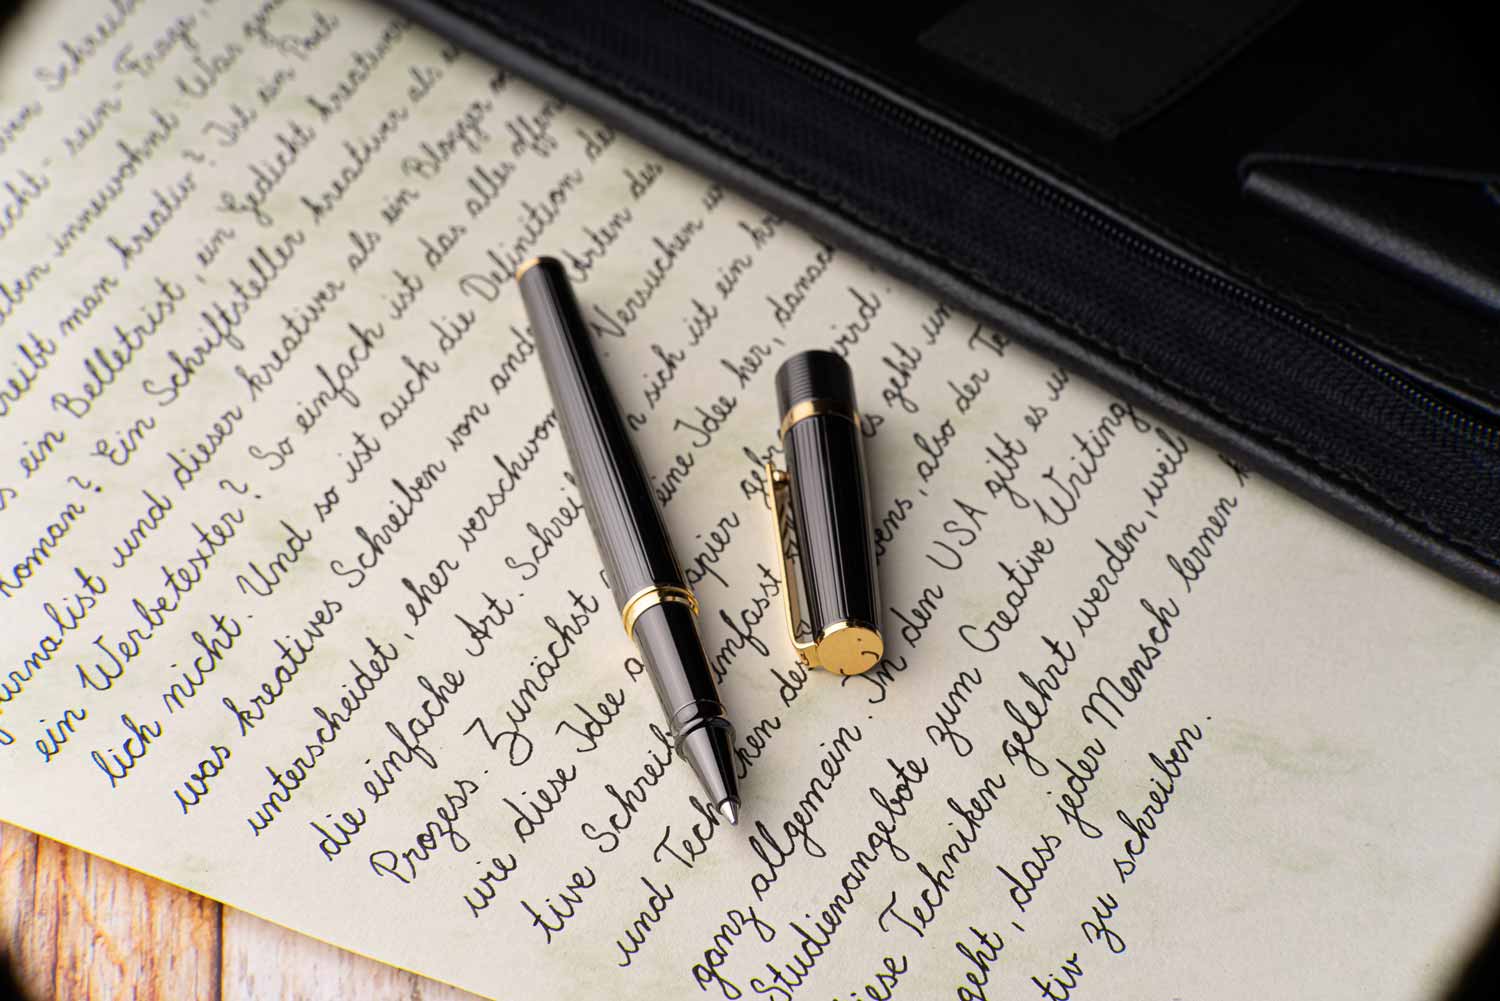 Schreib
sein. Frage,
innewohnt. Was
man kreativ? Ist ein Poet
ein Belletrist, ein Gedicht kreativer
Roman? Ein Schriftsteller kreativer als
urnalist und dieser kreativer als ein Blogger
ein Werbetexter? So einfach ist das alles offen
lich nicht. Und so ist auch die Definition de
was kreatives Schreiben von ande Arten des
unterscheidet, eher verschwom Versuchen
die einfache Art. Schrei sich ist ein kr
Prozess. Zunächst eine Idee her, danach
wie diese Idee a apier gebr wird.
tive Schreib umfasst es geht um
und Tech ken de bens, also der Te
ganz allgemein. In den USA gibt es
Studienangebote zum Creative Writing
iese Techniken gelehrt werden, weil
geht, dass jeder Mensch lernen k
tiv zu schreiben.